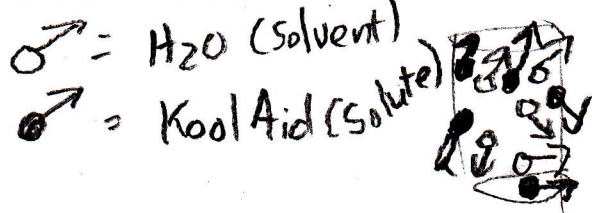 = H2O (Solvent)
= Kool Aid (Solute)